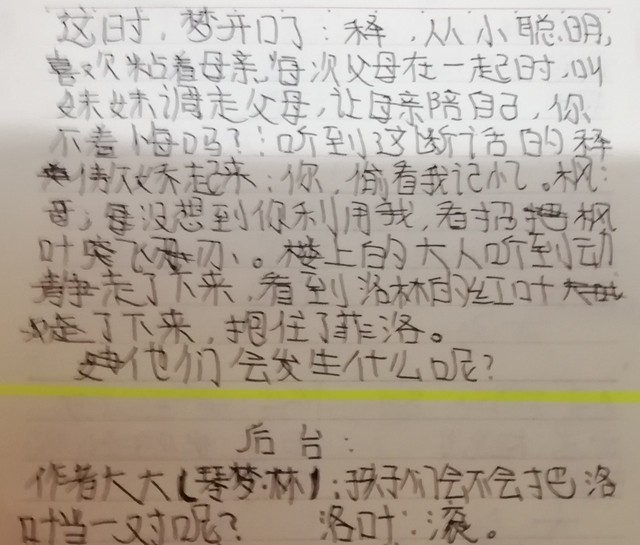 这时，梦开口了：释，从小聪明，
喜欢粘着母亲，每次父母在一起时，叫
妹妹调走父母，让母亲陪自己，你
不羞悔吗？听到这断话的释
起来：你，偷看我记忆。枫：
哥，没想到你利用我，看招枫
叶飞刃、。楼上的大人听到动
静走了下来，看到洛林的红叶
走了下来，抱住了菲洛。
他们会发生什么呢？
后台：
作者大大（琴梦·林）：孩子们会不会把洛
叶当一对呢？ 洛叶：滚。